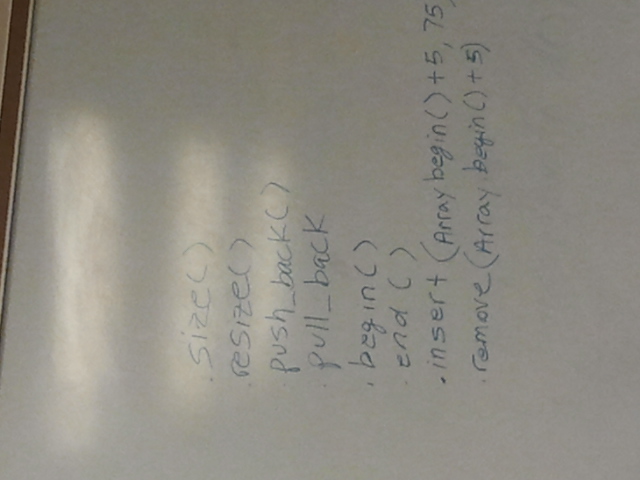 .size()
.resize()
push_back()
.pull_back
.begin()
.end ()
.insert (Array begin()+5, 75,
.remove (Array begin()+5)